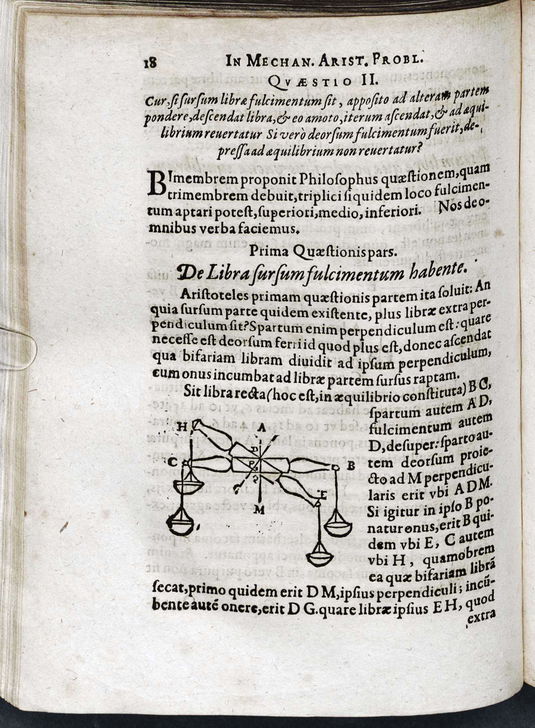 18 IN MECHAN. ARIST. PROBL.
QVÆSTIO II.
Cur, si sursum libræ fulcimentum sit, apposito ad alteram partem
pondere, descendat libra, & eo amoto, iterum ascendat, & ad æqui-
librium reuertatur Si verò deorsum fulcimentum fuerit, de-
pressa ad æquilibrium non reuertatur?
BImembrem proponit Philosophus quæstionem, quam
trimembrem debuit, triplici siquidem loco fulcimen-
tum aptari potest, superiori, medio, inferiori. Nos de o-
mnibus verba faciemus.
Prima Quæstionis pars.
De Libra sursum fulcimentum habente.
Aristoteles primam quæstionis partem ita soluit: An
quia sursum parte quidem existente, plus libræ extra per-
pendiculum sit? Spartum enim perpendiculum est: quare
necesse est deorsum ferri id quod plus est, donec ascendat
qua bifariam libram diuidit ad ipsum perpendiculum,
cum onus incumbat ad libræ partem sursus raptam.
Sit libra recta (hoc est, in æquilibrio constituta) B C,
spartum autem A D,
fulcimentum autem
D, desuper: sparto au-
tem deorsum proie-
cto ad M perpendicu-
laris erit vbi A D M.
Si igitur in ipso B po-
natur onus, erit B qui-
dem vbi E, C autem
vbi H, quamobrem
ea quæ bifariam librā
secat, primo quidem erit D M, ipsius perpendiculi; incū-
bente autē onere, erit D G. quare libræ ipsius E H, quod
extra
H A
C B
E
M